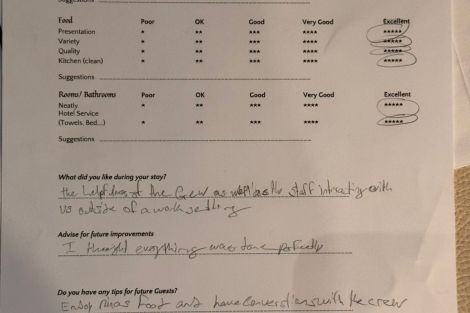 Suggestions
Food Poor OK Good Very Good Excellent
Presentation * ** *** **** *****
Variety * ** *** **** *****
Quality * ** *** **** *****
Kitchen (clean) * ** *** **** *****
Suggestions
Rooms/ Bathrooms Poor OK Good Very Good Excellent
Neatly * ** *** **** *****
Hotel Service
(Towels, Bed....) * ** *** **** *****
Suggestions :
What did you like during your stay?
the helpfulness of the Crew as well as the staff interacting with
us outside of a work setting
Advise for future improvements
I thought everything was done perfectly
Do you have any tips for future Guests?
Enjoy food and have conversations with the crew